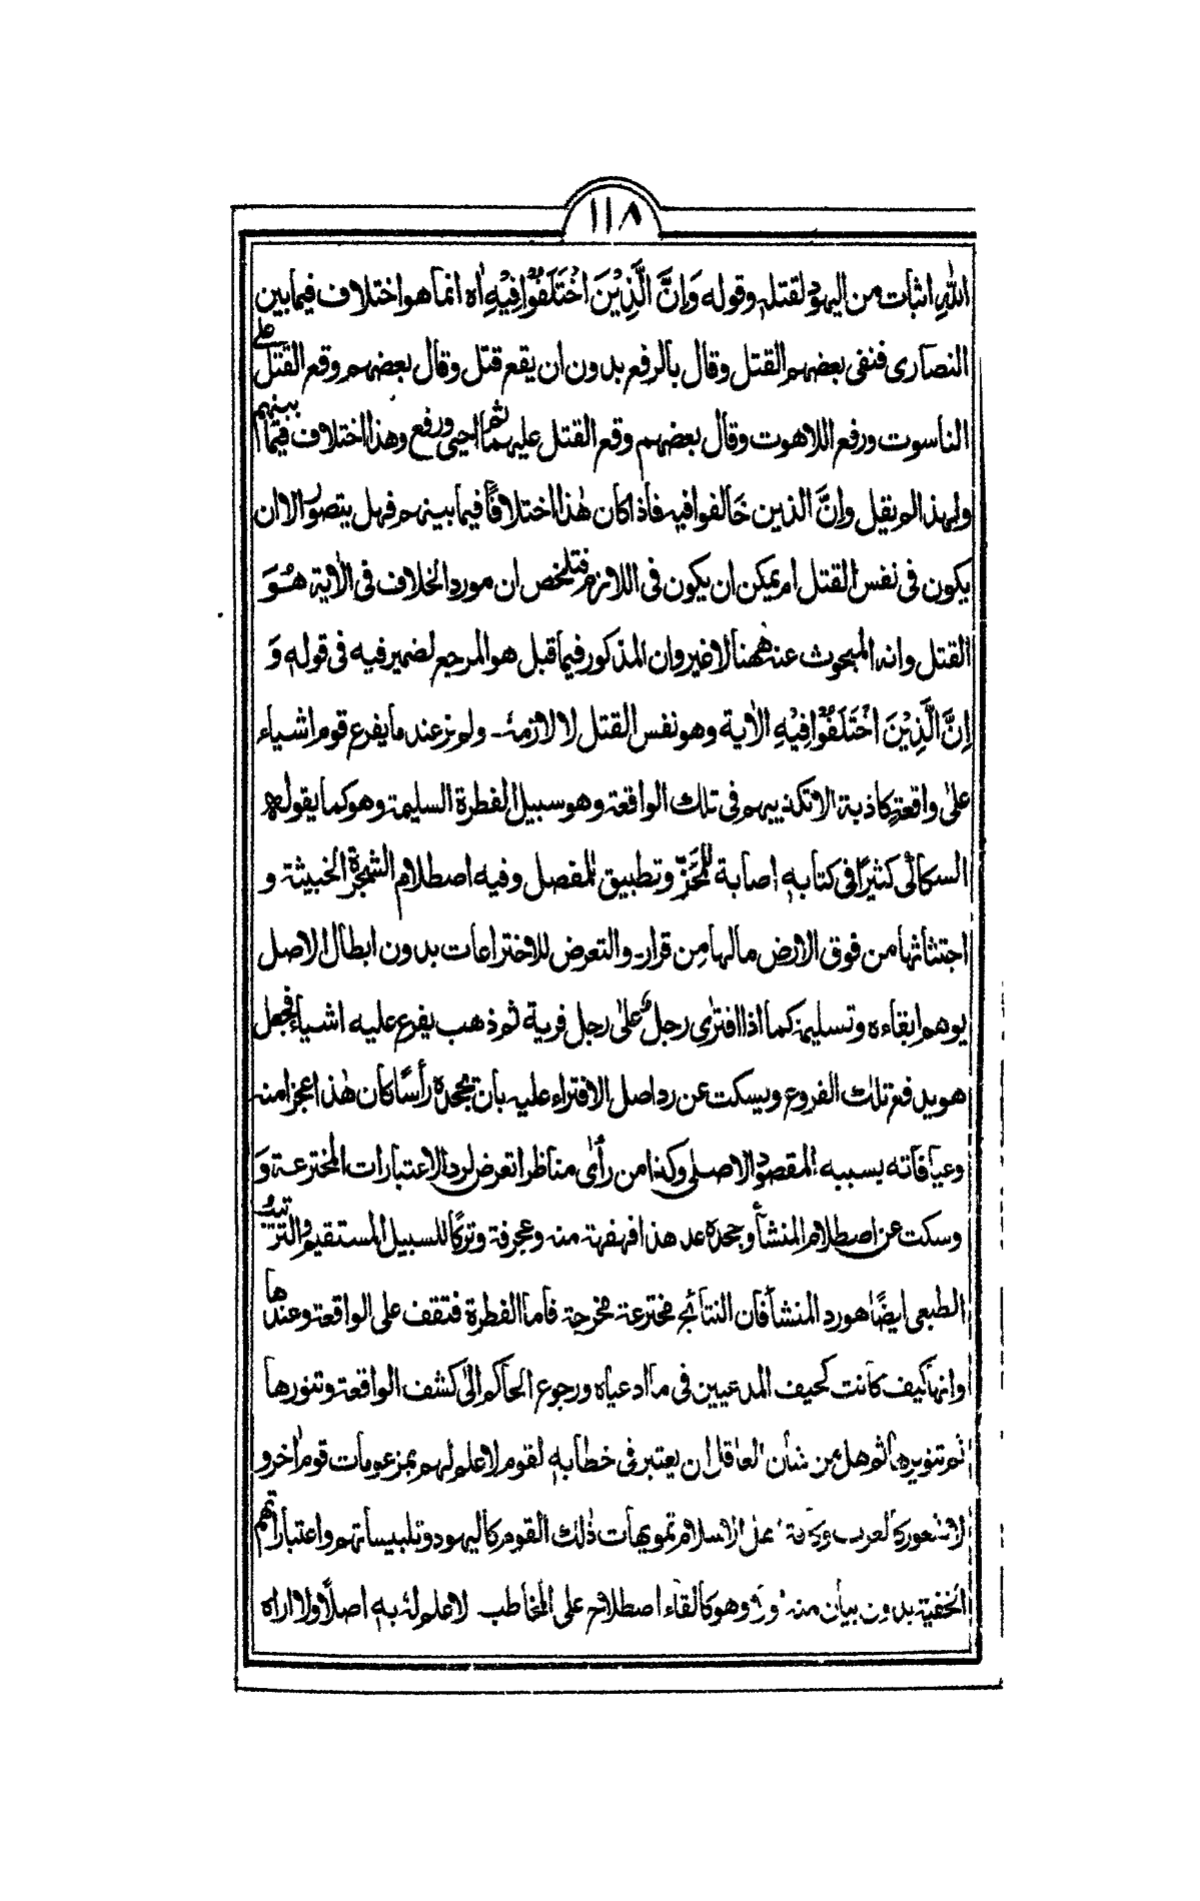 ١١٨
اللهِ اثبات من اليهود لقتلهٖ وقوله وَاِنَّ الَّذِيْنَ اخْتَلَفُوْا فِيْهِ اٰه انما هو اختلاف فيما بين
النصارى فنفى بعضهم القتل وقال بالرفع بدون ان يقع قتل وقال بعضهم وقع القتل على
الناسوت ورفع اللاهوت وقال بعضهم وقع القتل عليهما ثم احيى ورفع وهذا اختلاف فيما بينهم
ولهذا لم يقل وانَّ الذين خَالفوا فيه فاذا كان هٰذا اختلافًا فيما بينهم فهل يتصور الا ان
يكون فى نفس القتل ام يمكن ان يكون فى اللازم فتلخص ان مورد الخلاف فى الاٰية هُوَ
القتل وانه المبحوث عنه ههنا لا غير وان المذكور فيما قبل هو المرجع لضمير فيه فى قولهٖ وَ
اِنَّ الَّذِيْنَ اخْتَلَفُوْا فِيْهِ الاٰية وهو نفس القتل لا لازمهٗ۔ ولم نر عند ما يفرع قوم اشياء
علىٰ واقعةٍ كاذبة الا تكذيبهم فى تلك الواقعة وهو سبيل الفطرة السليمة وهو كما يقوله
السكاكى كثيرًا فى كتابهٖ اصابة للمَحَزِّ وتطبيق للمفصل وفيه اصطلام الشجرة الخبيثة و
اجتثاثها من فوق الارض ما لها مِن قرار۔ والتعرض للاختراعات بدون ابطال الاصل
يوهم ابقاءه وتسليمه كما اذا افترٰى رجل علىٰ رجل فرية ثم ذهب يفرع عليه اشياء فجعل
هو يدفع تلك الفروع ويسكت عن رد اصل الافتراء عليه بان يجحده رأسًا كان هٰذا عجزا منه
وعيا فاته بسببه المقصود الاصلى وكذا من رأى مناظرا تعرض لرد الاعتبارات المخترعة وَ
وسكت عن اصطلام المنشأ وجحده عد هذا فهفهة منه وعجرفة وتركًا للسبيل المستقيم والترتيب
الطبعى ايضًا هو رد المنشأ فان النتائج مخترعة مخرجة فاما الفطرة فتقف على الواقعة وعندها
وانها كيف كانت كحيف المدعيين فى ما ادعياه ورجوع الحاكم الىٰ كشف الواقعة وتنورها
ثم تنويرها ثم هل من شان العاقل ان يعتبر فى خطابهٖ لقوم لا علم لهم بمزعومات قوم اٰخر و
لا شعور كالعرب الاسلام تمويهات ذٰلك القوم كاليهود وتلبيساتهم واعتباراتهم
الخفية بدون بيان منه وهو كالقاء اصطلاح على المخاطب لا علم لهٗ بهٖ اصلًا ولا اراه